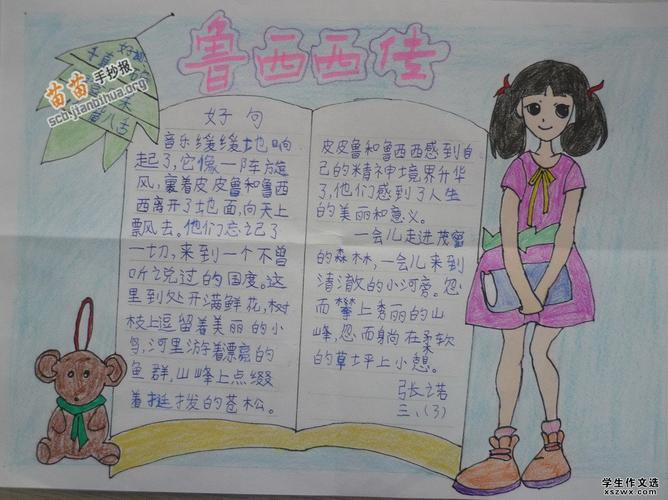 鲁西西传
好词
苗苗手抄报
scb.jianbihua.org
好句
音乐缓缓地响
起了,它像一阵旋
风,裹着皮皮鲁和鲁西
西离开了地面,向天上
飘去。他们忘记了
一切,来到一个不曾
听说过的国度。这
里到处开满鲜花,树
枝上逗留着美丽的小
鸟,河里游着漂亮的
鱼群,山峰上点缀
着挺拔的苍松。
皮皮鲁和鲁西西感到自
己的精神境界升华
了,他们感到了人生
的美丽和意义。
一会儿走进茂密
的森林,一会儿来到
清澈的小河旁。忽
而攀上秀丽的山
峰,忽而躺在柔软
的草坪上小憩。
张诺
三、(3)
学生作文选
xszwx.cn